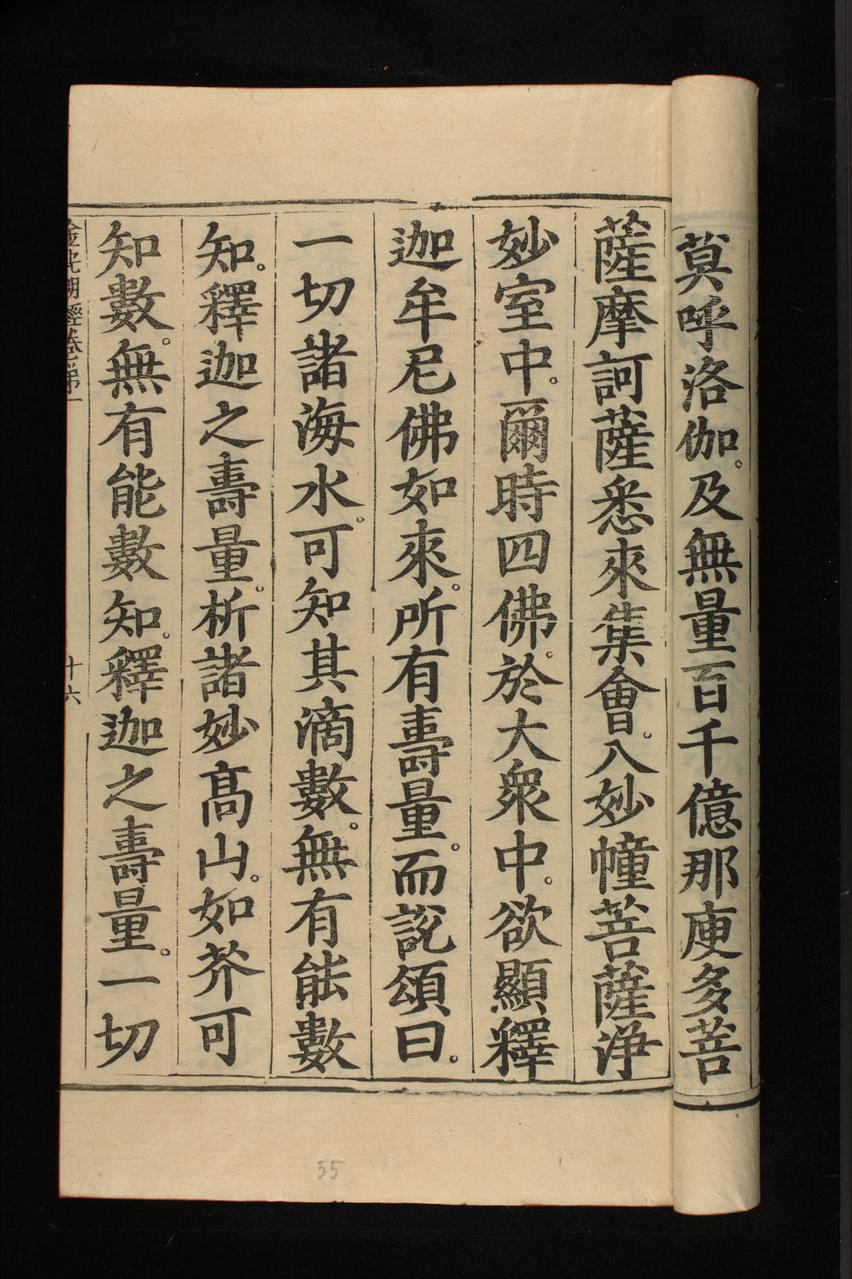 莫呼洛伽。及無量百千億那庾多菩
薩摩訶薩悉來集會。入妙幢菩薩淨
妙室中。爾時四佛。於大衆中。欲顯釋
迦牟尼佛如來。所有壽量。而說頌曰。
一切諸海水。可知其滴數。無有能數
知。釋迦之壽量。析諸妙高山。如芥可
知數。無有能數知。釋迦之壽量。一切
金光明經卷第一
十六
55